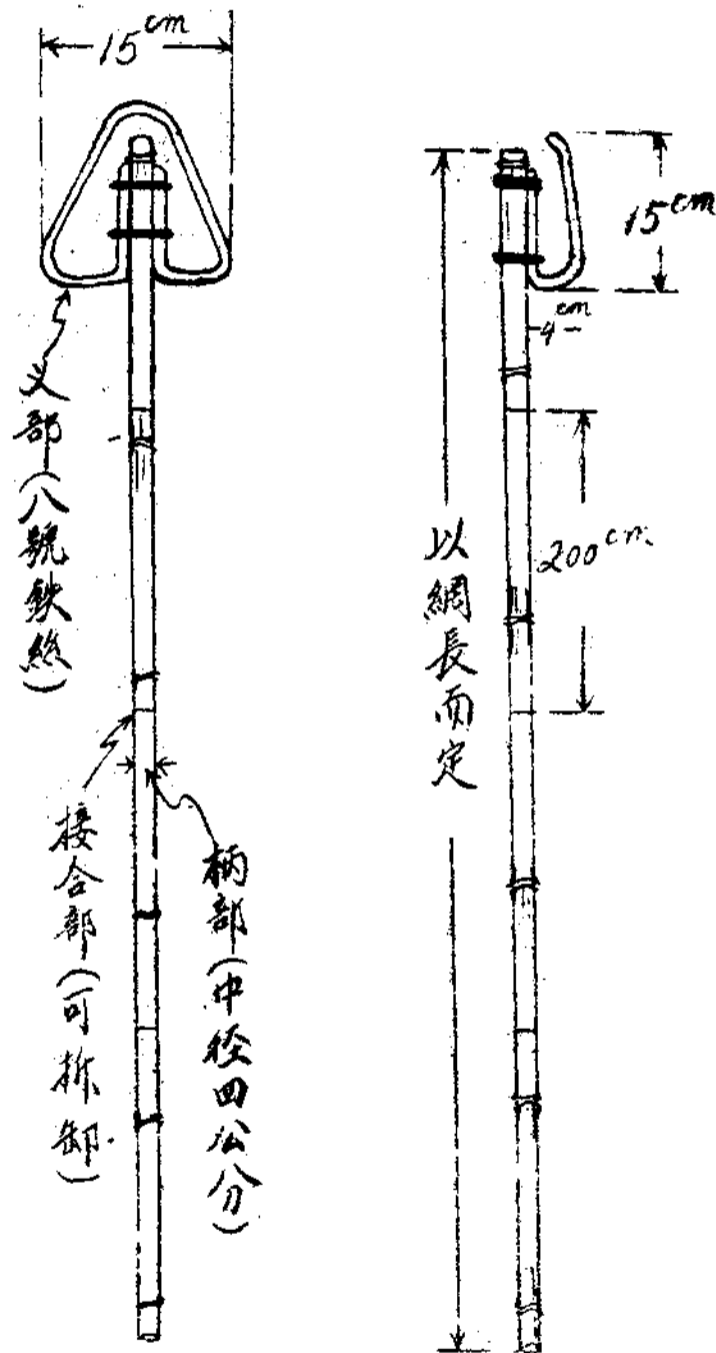 15cm
叉部(八號鉄絲)
接合部(可拆卸)
柄部(中径四公分)
15cm
4cm
200cm
以網長而定